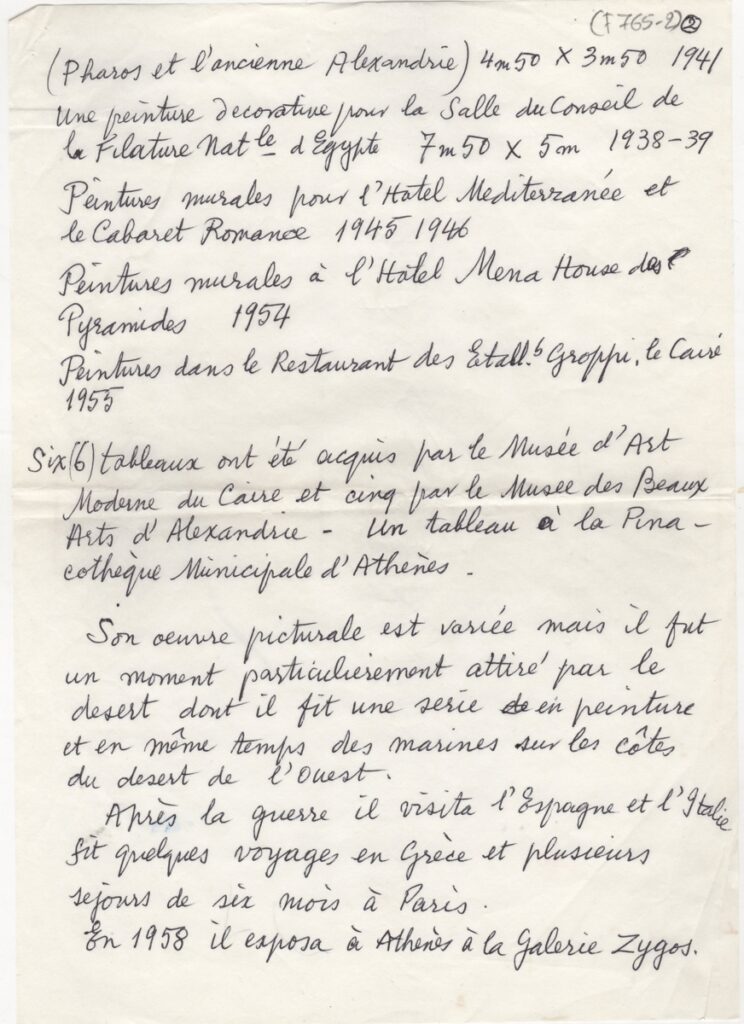 (F765-2) ②
(Pharos et l'ancienne Alexandrie) 4m50 X 3m50 1941
Une peinture decorative pour la Salle du Conseil de
la Filature Natle d'Egypte 7m50 X 5m 1938-39
Peintures murales pour l'Hotel Mediterranée et
le Cabaret Romance 1945 1946
Peintures murales à l'Hôtel Mena House des
Pyramides 1954
Peintures dans le Restaurant des Etabl.ts Groppi, le Caire
1955
Six (6) tableaux ont été acquis par le Musée d'Art
Moderne du Caire et cinq par le Musee des Beaux
Arts d'Alexandrie - Un tableau à la Pina-
cothèque Municipale d'Athènes.
Son oeuvre picturale est variée mais il fut
un moment particulièrement attiré par le
desert dont il fit une serie de en peinture
et en même temps des marines sur les côtes
du desert de l'Ouest.
Après la guerre il visita l'Espagne et l'Italie
fit quelques voyages en Grèce et plusieurs
séjours de six mois à Paris.
En 1958 il exposa à Athènes à la Galerie Zygos.